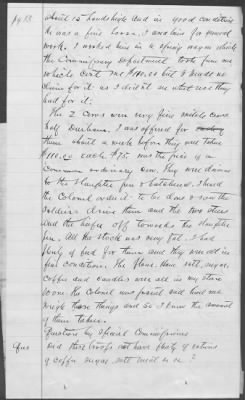 about 15 hands high and in good condition
He was a fine horse. I used him for general
work. I worked him in a spring wagon which
the Commissary department took from me
which cost me $140.00 but I made no
claim for it as I did not see what use they
had for it.
The 2 cows were very fine milch cows
half Durhams. I was offered for
them about a week before they were taken
$100.00 each. $75. was the price of a
common ordinary cow. They were driven
to the slaughter pen & butchered. I heard
the Colonel order it to be done & saw the
soldiers drive them and the two steers
and the heifer off towards the slaughter
pen. All the stock was very fat. I had
plenty of feed for them and they were all in
full condition. The flour, ham, salt, sugar,
coffee and candles were all in my store
room. The Colonel was present and had me
weigh those things and so I knew the amount
of them taken.
Question by Special Commissioner
Ques Did these troops not have plenty of rations
of coffee sugar, salt meat &c. ?